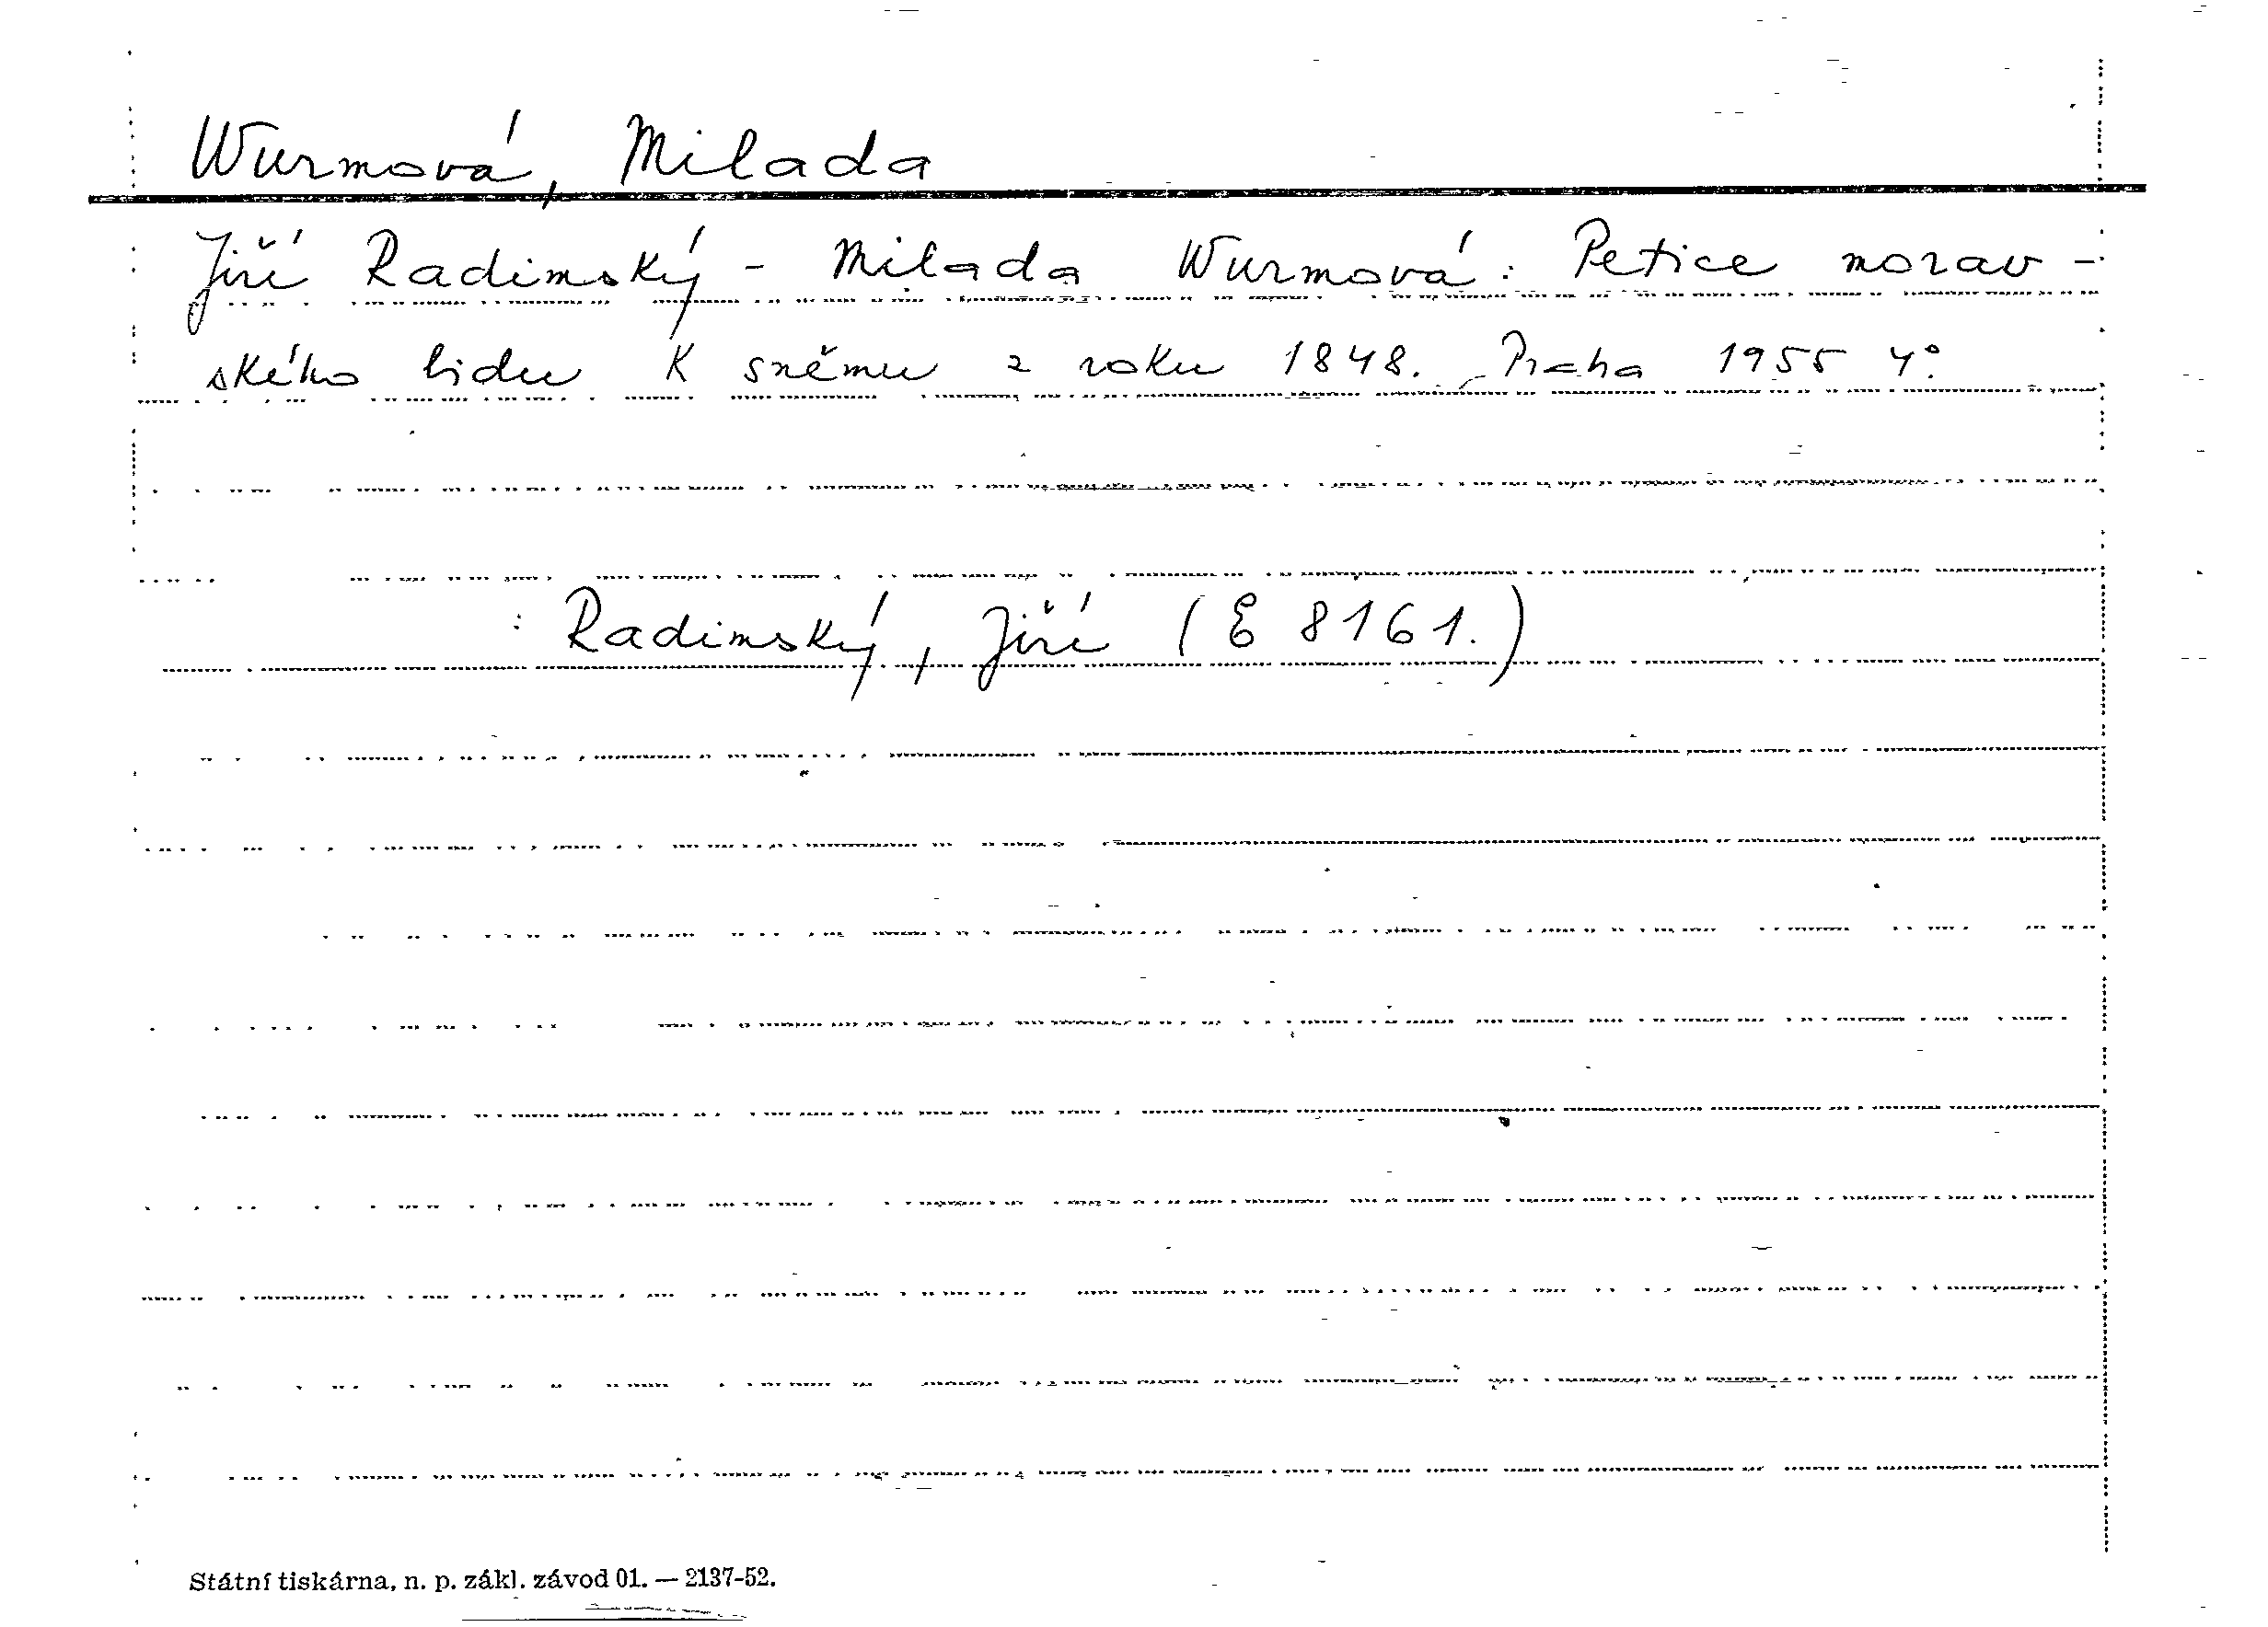 Wurmová, Milada
Jiří Radimský - Milada Wurmová: Petice morav-
ského lidu K sněmu z roku 1848. Praha 1955 4°.
: Radimský, Jiří (E 8161.)
Státní tiskárna, n. p. zákl. závod 01. — 2137-52.